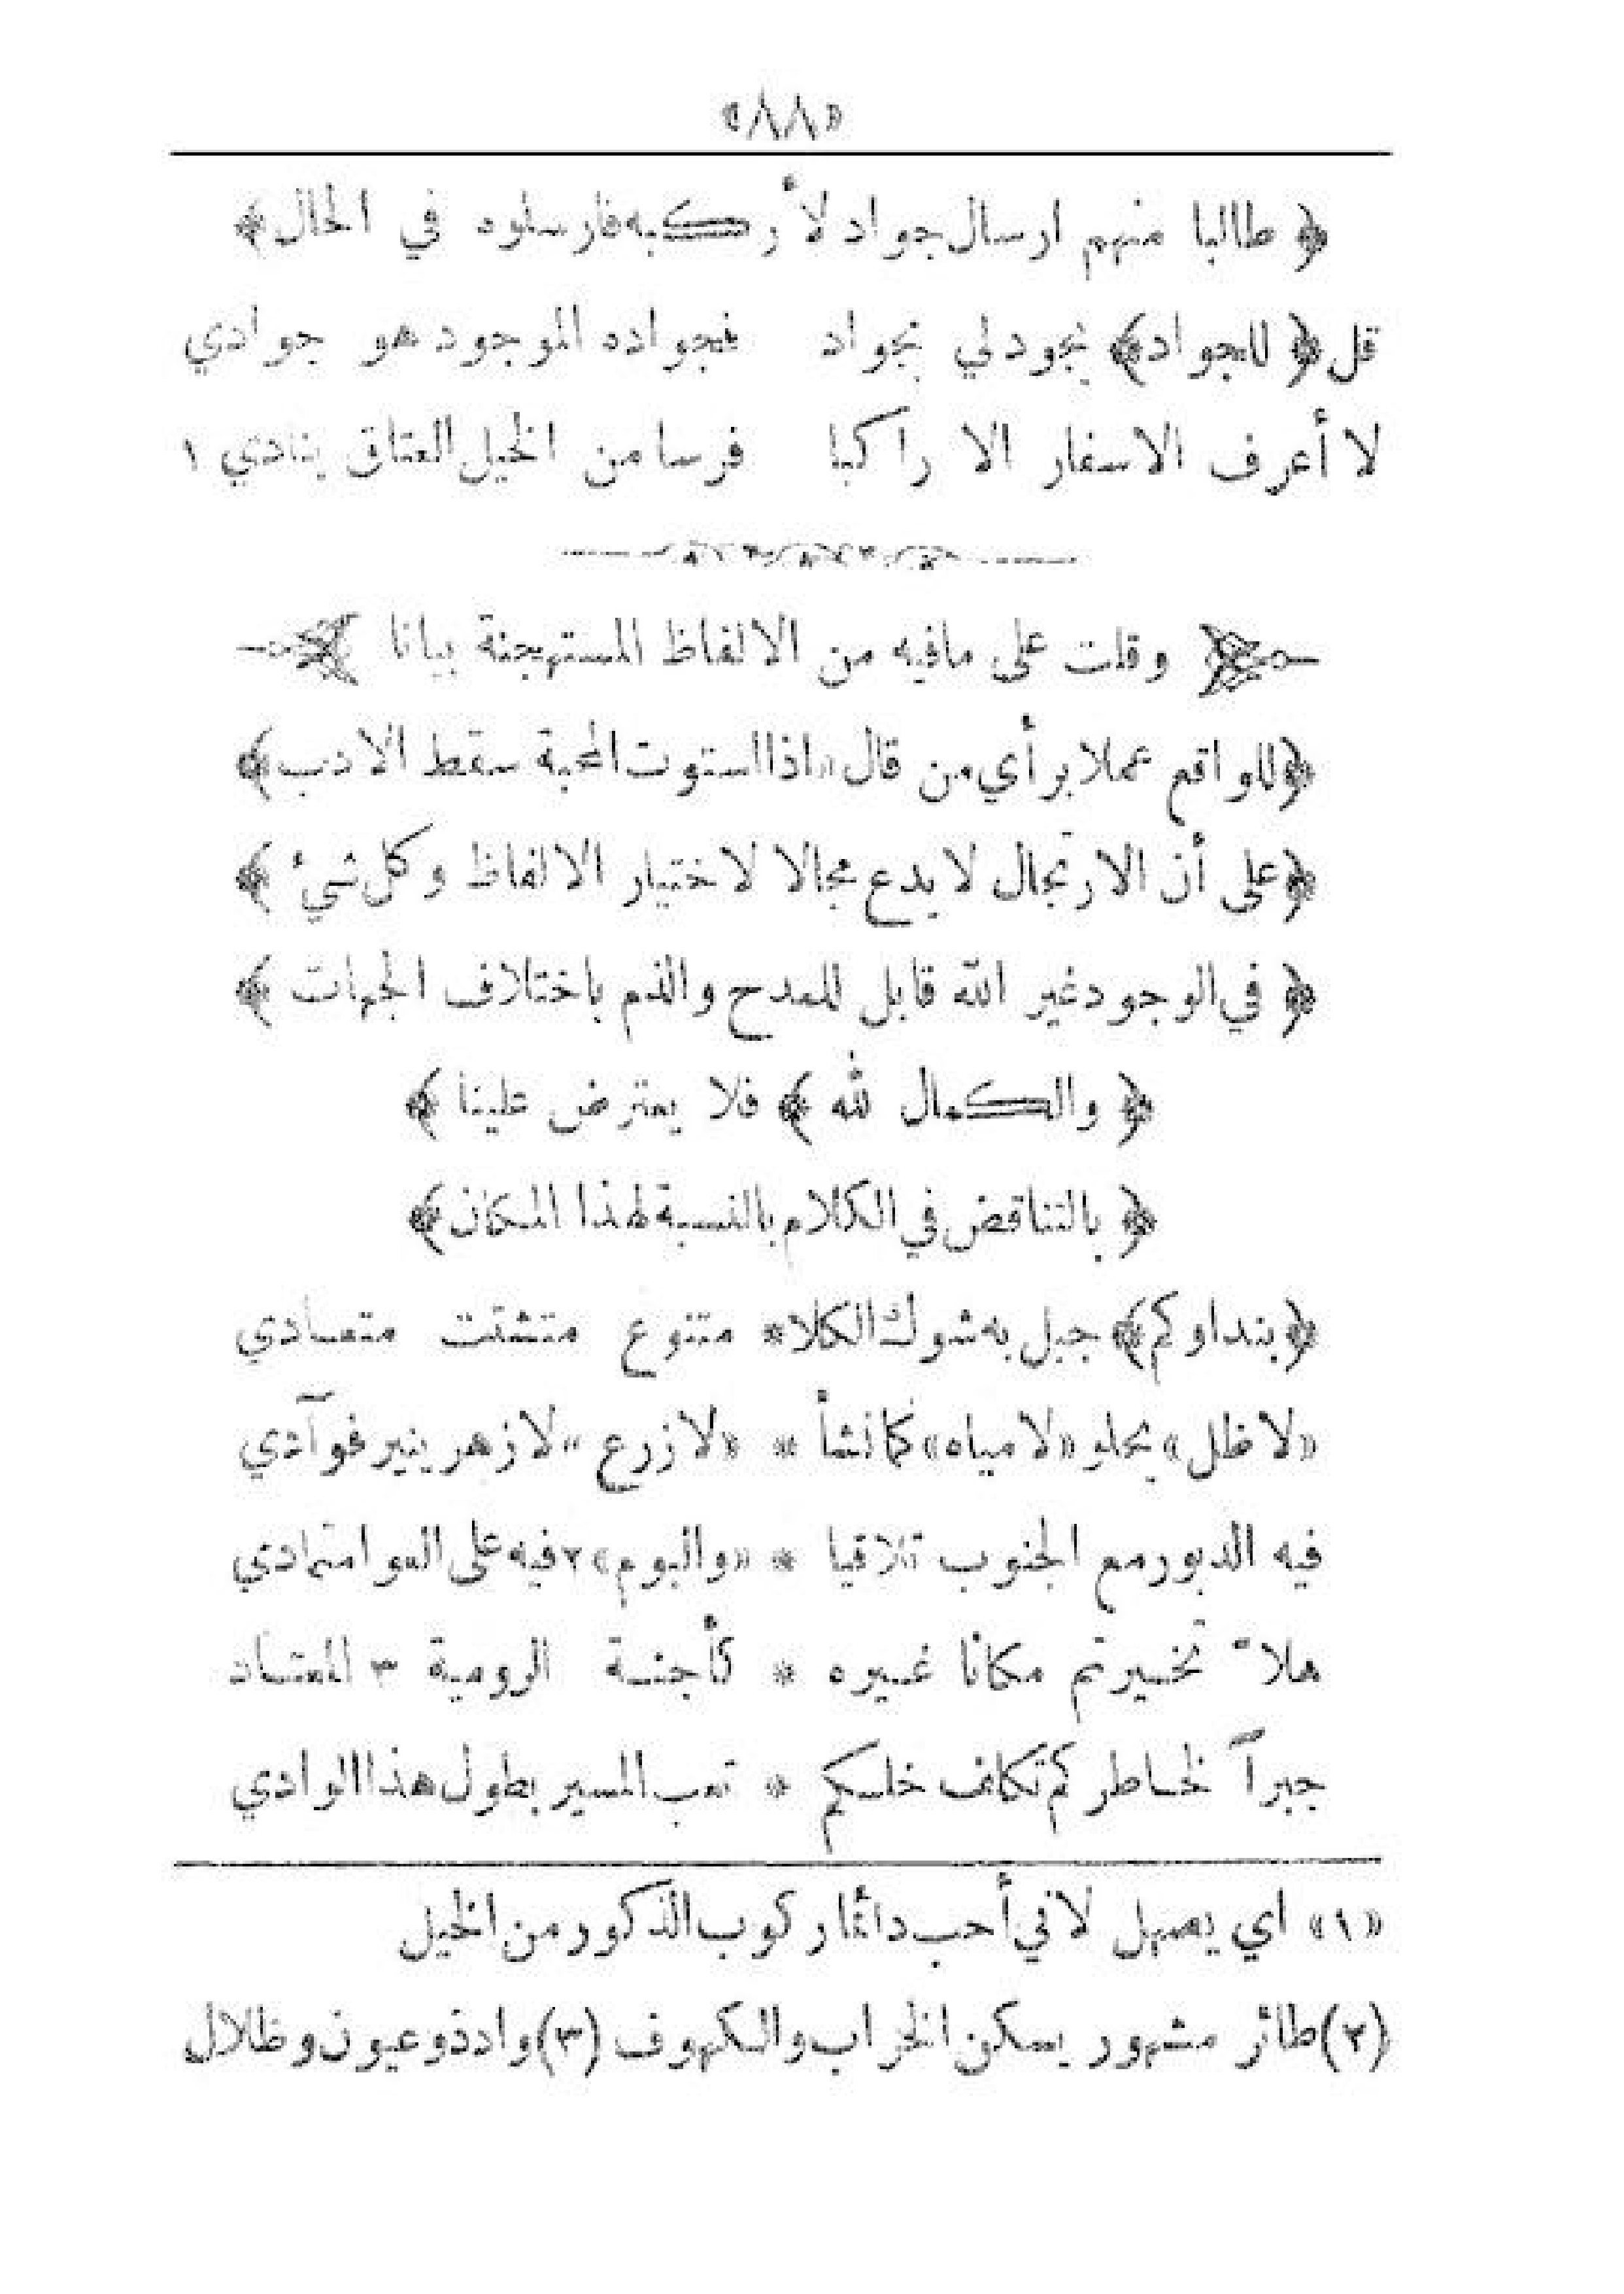 «٨٨»
﴿ طالبا منهم ارسال جواد لأركبه فارسلوه في الحال ﴾
قل ﴿ للجواد ﴾ يجود لي بجواد فجواده الموجود هو جوادي
لا أعرف الاسفار الا راكبا فرسا من الخيل العتاق ينادي ١
وقلت على مافيه من الالفاظ المستهجنة بيانا
﴿ للواقع عملا برأي من قال «اذا استوت المحبة سقط الادب ﴾
﴿ على أن الارتجال لا يدع مجالا لاختيار الالفاظ وكل شيء ﴾
﴿ في الوجود غير الله قابل للمدح والذم باختلاف الجهات ﴾
﴿ والكمال لله ﴾ فلا يعترض علينا ﴾
﴿ بالتناقض في الكلام بالنسبة لهذا المكان ﴾
﴿ بنداوكم ﴾ جبل به شوك الكلا * متنوع متشتت متعادي
«لا ظل» يحلو «لا مياه» كما نشأ * «لا زرع» لا زهر ينير فوآدي
فيه الدبور مع الجنوب تلاقيا * «والبوم» ٢ فيه على العوا متمادي
هلاّ تخيرتم مكانا غيره * كأجنة الرومية ٣ المعتاد
جبراً لخاطركم تكلف خلكم * تعب المسير بطول هذا الوادي
«١» اي يصهل لاني أحب دائما ركوب الذكور من الخيل
(٢) طائر مشهور يسكن الخراب والكهوف (٣) واد ذو عيون وظلال